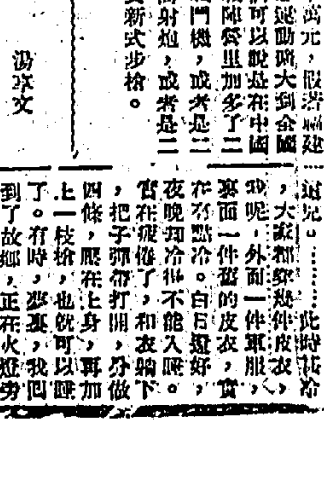 萬元,假若福建
運動擴大到全國
何可以說是在中國
陣營里加多了二
鬥機,或者是二
射炮,或者是二
新式步槍。
湯草文
道兒。………此時甚冷
,大家都穿幾件皮衣,
我呢,外面一件軍服,
裏面一件舊的皮衣,實
在有點冷。白日還好,
夜晚却冷得不能入睡。
實在疲倦了,和衣躺下
,把子彈帶打開,分做
四條,壓在上身,再加
上一枝槍,也就可以睡
了。有時,夢裏,我回
到了故鄉,正在火燈旁